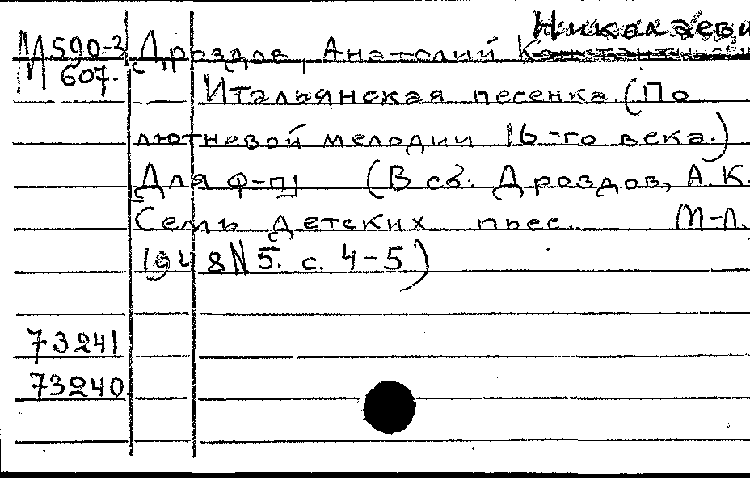 Николаеви
М 590-3 Дроздов, Анатолий
607.
Итальянская песенка (По
лютневой мелодии 16-го века.)
Для ф-п (В сб. Дроздов, А.К.
Семь детских пьес. М-Л,
1948 № 5. с. 4-5)
73241
73240